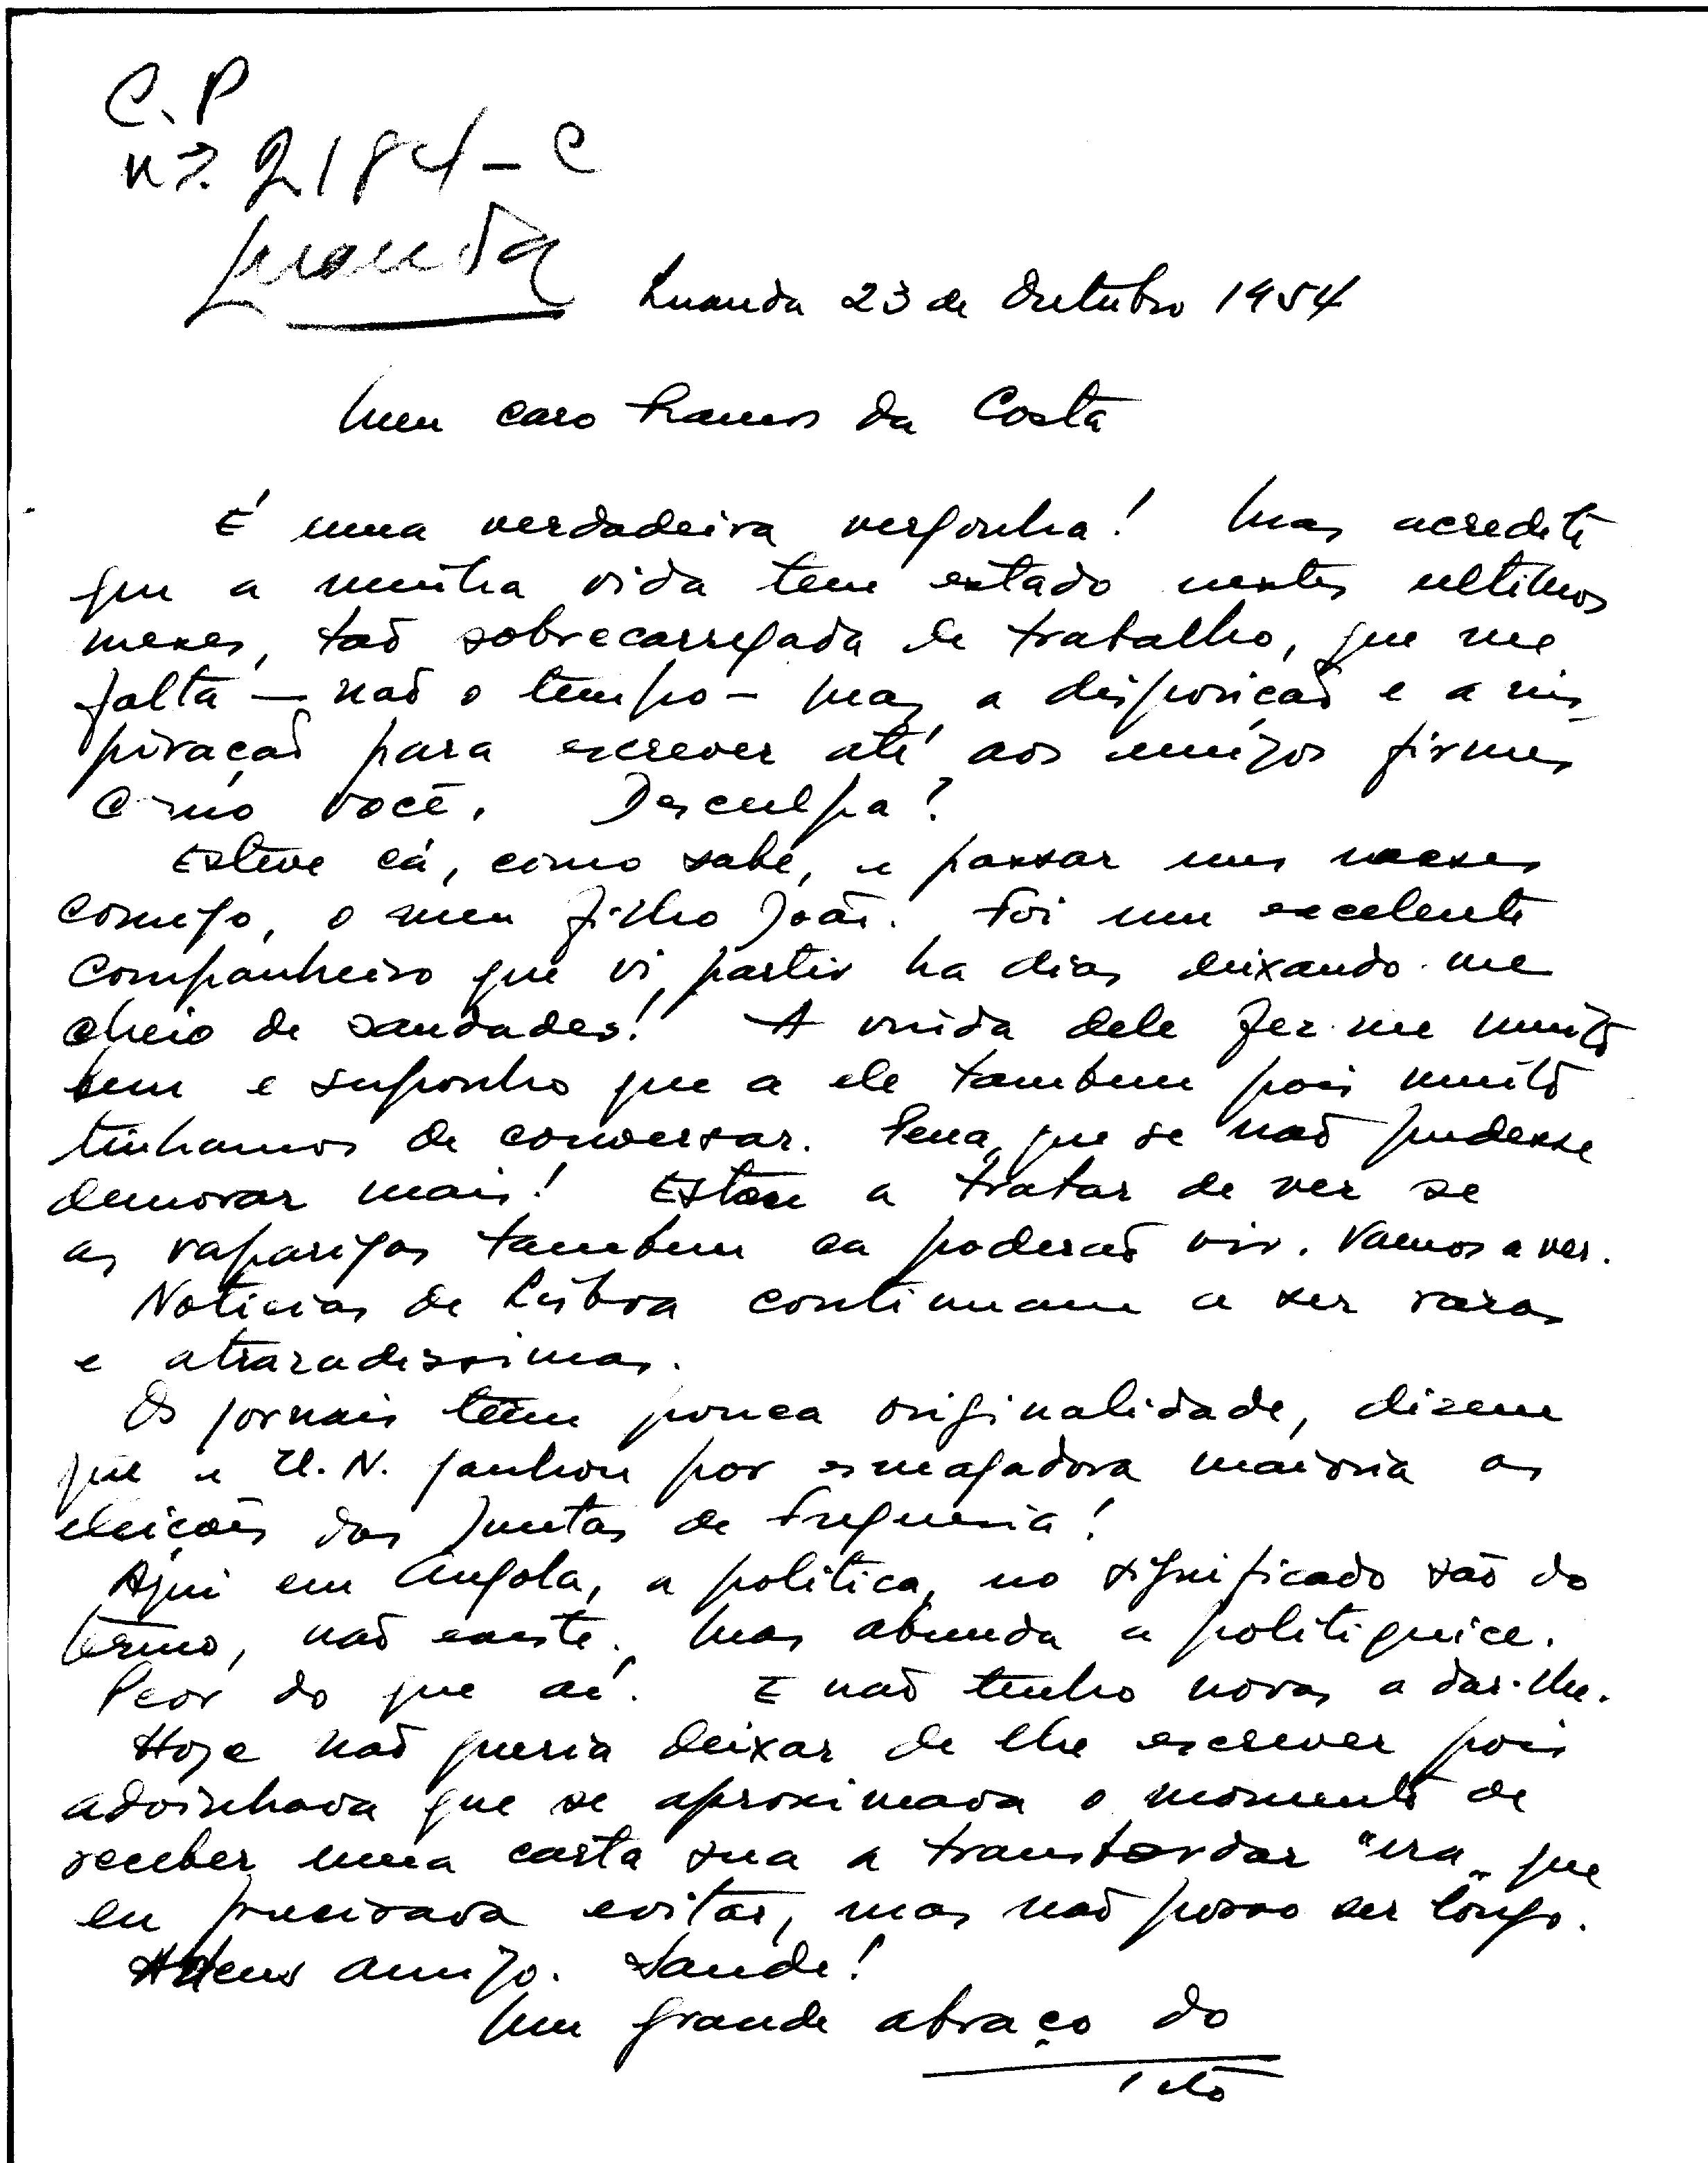 C.P
nº. 2184-C
Luanda
Luanda 23 de Outubro 1954
Meu caro Ramos da Costa
É uma verdadeira vergonha! Mas acredite
que a minha vida tem estado nestes ultimos
meses, taõ sobrecarregada de trabalho, que me
falta — naõ o tempo - mas a disposicaõ e a ins_
piraçaõ para escrever até aos amigos firmes
como você. Desculpa?
Esteve cá, como sabe, a passar uns meses
comigo, o meu filho Joaõ. Foi um excelente
companheiro que vi partir ha dias deixando-me
cheio de saudades! A vinda dele fez-me muito
bem e suponho que a ele tambem pois muito
tinhamos de conversar. Pena que se naõ pudesse
demorar mais! Estou a tratar de ver se
as raparigas tambem ca poderaõ vir. Vamos a ver.
Noticias de Lisboa continuam a ser raras
e atrazadissimas.
Os jornais têm pouca originalidade, dizem
que a U.N. ganhou por esmagadora maioria as
eleiçoẽs das Juntas de Freguesia!
Aqui em Angola, a politica, no significado saõ do
têrmo, naõ existe. Mas abunda a politiquice.
Peor do que aí. E naõ tenho novas a dar-lhe.
Hoje naõ queria deixar de lhe escrever pois
advinhava que se aproximava o momento de
receber uma carta sua a transbordar "ira" que
eu precisava evitar, mas naõ posso ser longo.
Adeus amigo. Saude!
Um grande abraço do